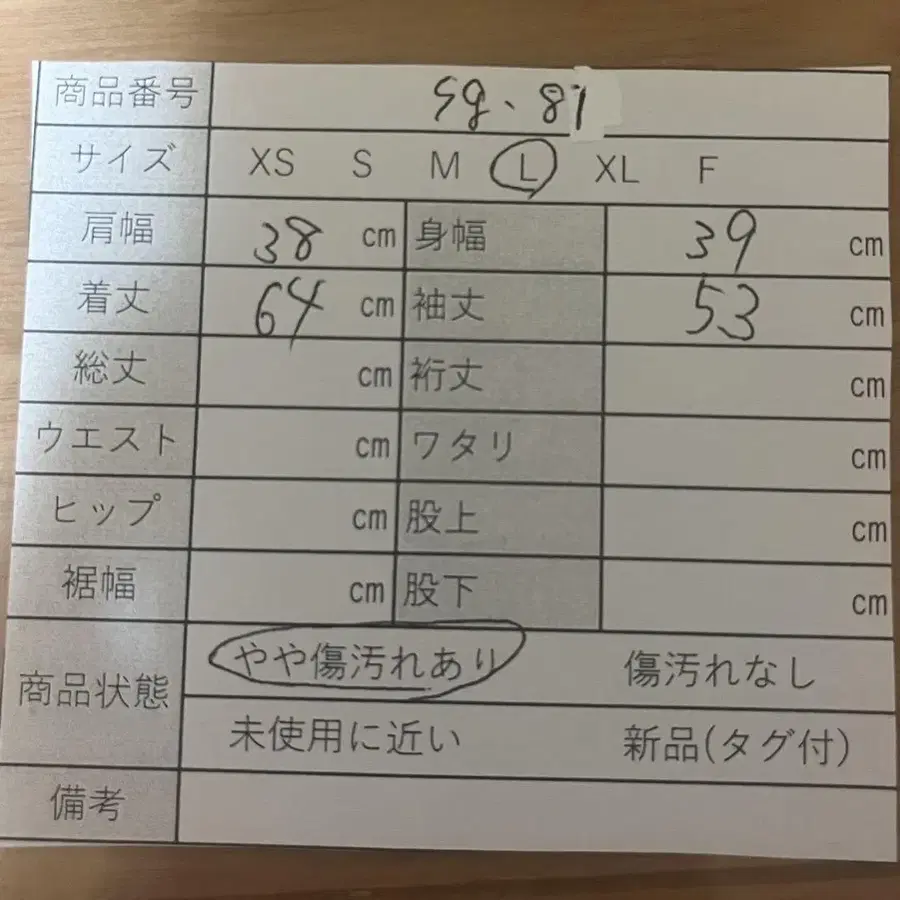 商品番号 Sg、81
サイズ XS S M L XL F
肩幅 38 cm 身幅 39 cm
着丈 64 cm 袖丈 53 cm
総丈 cm 裄丈 cm
ウエスト cm ワタリ cm
ヒップ cm 股上 cm
裾幅 cm 股下 cm
商品状態 やや傷汚れあり 傷汚れなし
未使用に近い 新品(タグ付)
備考